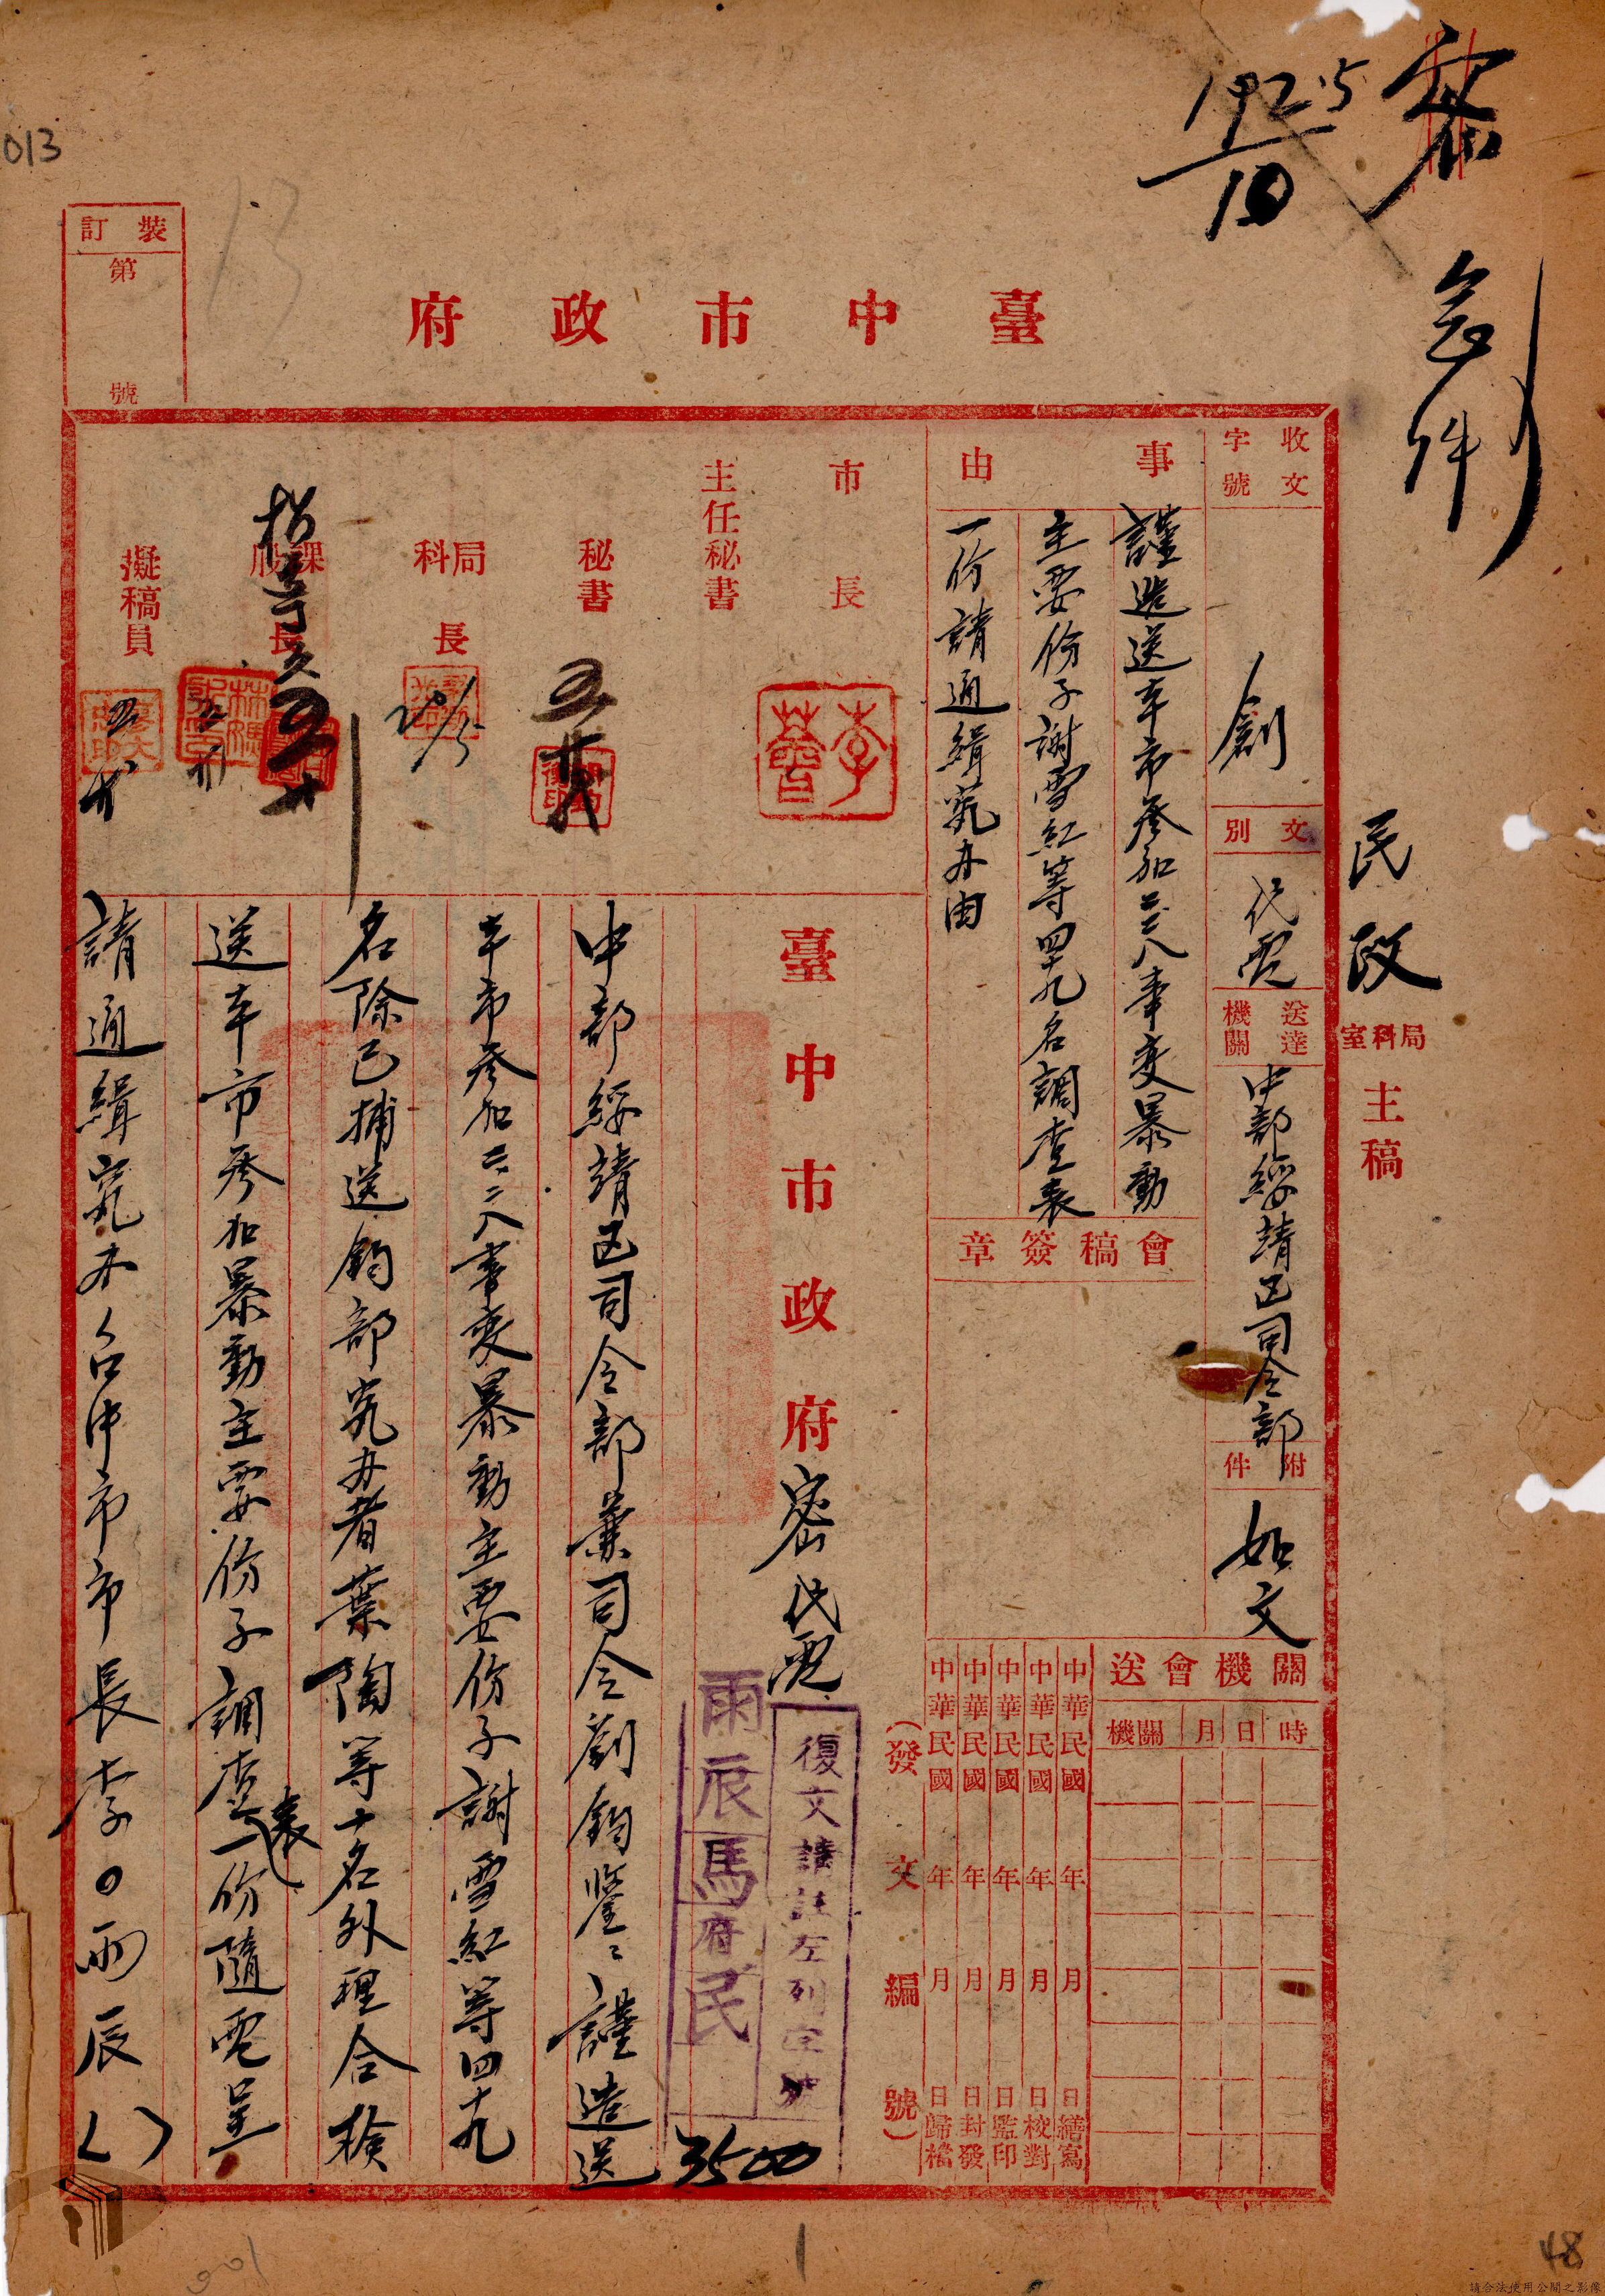 密
急件
192.5/10
013
裝訂
第
號
臺中市政府
民政
局科室
主稿
收文
字號
創
文別
代電
送達
機關
中部綏靖區司令部
附件
如文
事由
謹造送本市參加二二八事變暴動
主要份子謝雪紅等四十九名調查表
一份請通緝究办由
會稿簽章
關機會送
時
日
月
機關
中華民國 年 月 日繕寫
中華民國 年 月 日校對
中華民國 年 月 日監印
中華民國 年 月 日封發
中華民國 年 月 日歸檔
（發文編號）
市長
李薈
主任秘書
秘書
局科長
20/5
課股長
擬稿員
臺中市政府密代電
復文請註左列字號
雨辰馬府民
3500
中部綏靖區司令部兼司令劉鈞鑒：謹造送
本市參加二二八事變暴動主要份子謝雪紅等四十九
名除已捕送鈞部究办者葉陶等十名外理合檢
送本市參加暴動主要份子調查表一份隨電呈
請通緝究办台中市市長李〇雨辰（ ）
1
48
請合法使用公開之影像